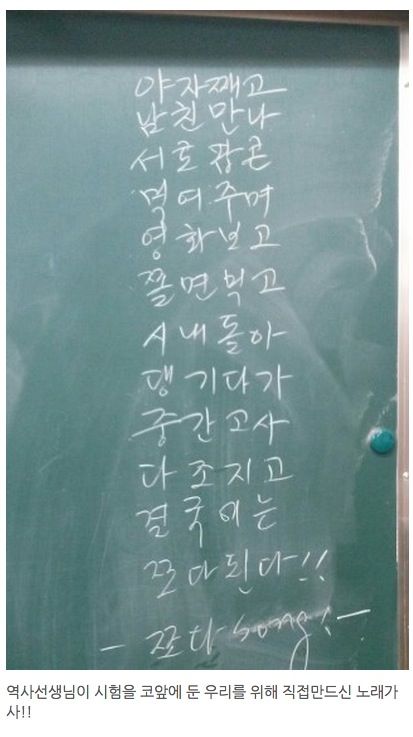 야자째고
남친만나
서로팝콘
먹여주며
영화보고
쫄면먹고
시내돌아
댕기다가
중간고사
다조지고
결국에는
쪼다된다!!
- 쪼다 song! -
역사선생님이 시험을 코앞에 둔 우리를 위해 직접만드신 노래가
사!!